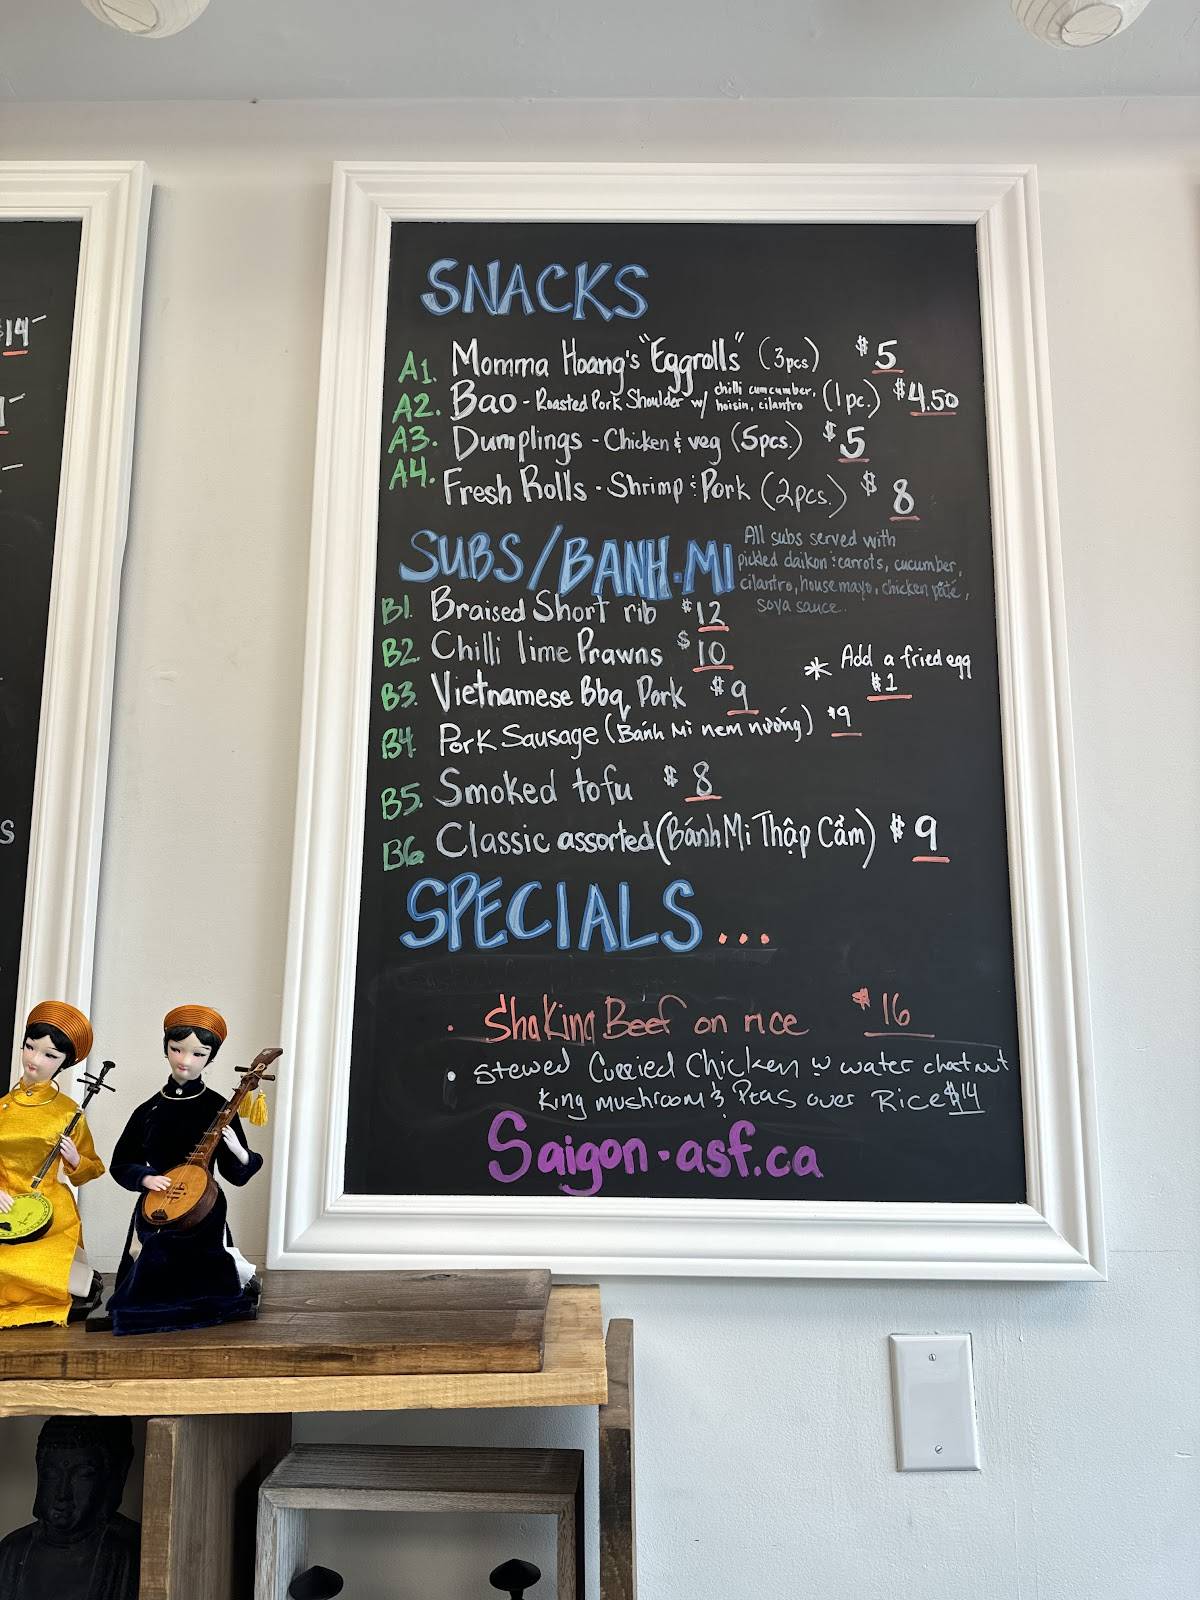 $14
SNACKS
A1. Momma Hoang's "Eggrolls" (3pcs) $5
A2. Bao - Roasted Pork Shoulder w/ chilli cumcumber, hoisin, cilantro (1pc.) $4.50
A3. Dumplings - Chicken & veg (5pcs.) $5
A4. Fresh Rolls - Shrimp & Pork (2pcs.) $8
SUBS/BANH.MI
All subs served with
pickled daikon & carrots, cucumber,
cilantro, house mayo, chicken pâté,
soya sauce.
B1. Braised Short rib $12
B2. Chilli lime Prawns $10
* Add a fried egg
$1
B3. Vietnamese Bbq Pork $9
B4. Pork Sausage (Bánh Mì nem nướng) $9
B5. Smoked tofu $8
B6. Classic assorted (Bánh Mì Thập Cẩm) $9
SPECIALS...
· Shaking Beef on rice $16
• Stewed Curried Chicken w water chestnut
King mushroom & Peas over Rice $14
Saigon.asf.ca